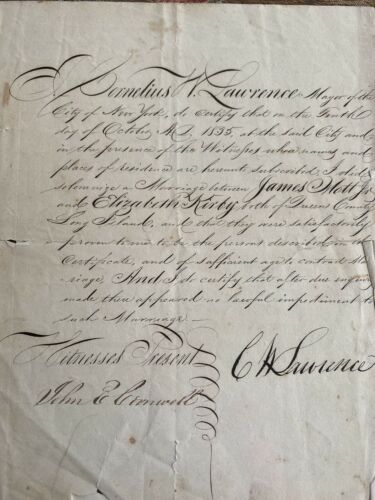 I, Cornelius W. Lawrence Mayor of the
City of New York, do certify that on the Tenth
day of October A.D. 1835, at the said City and
in the presence of the Witnesses whose names and
places of residence are hereunto subscribed I did
solemnize a Marriage between James Mott Jr
and Elizabeth Kirby both of Queens County
Long Island, and that they were satisfactorily
proven to me to be the persons described in this
Certificate, and of sufficient age to contract Mar
riage, And I do certify that after due inquiry
made there appeared no lawful impediment to
such Marriage —
Witnesses Present
C W Lawrence
John E Cromwell